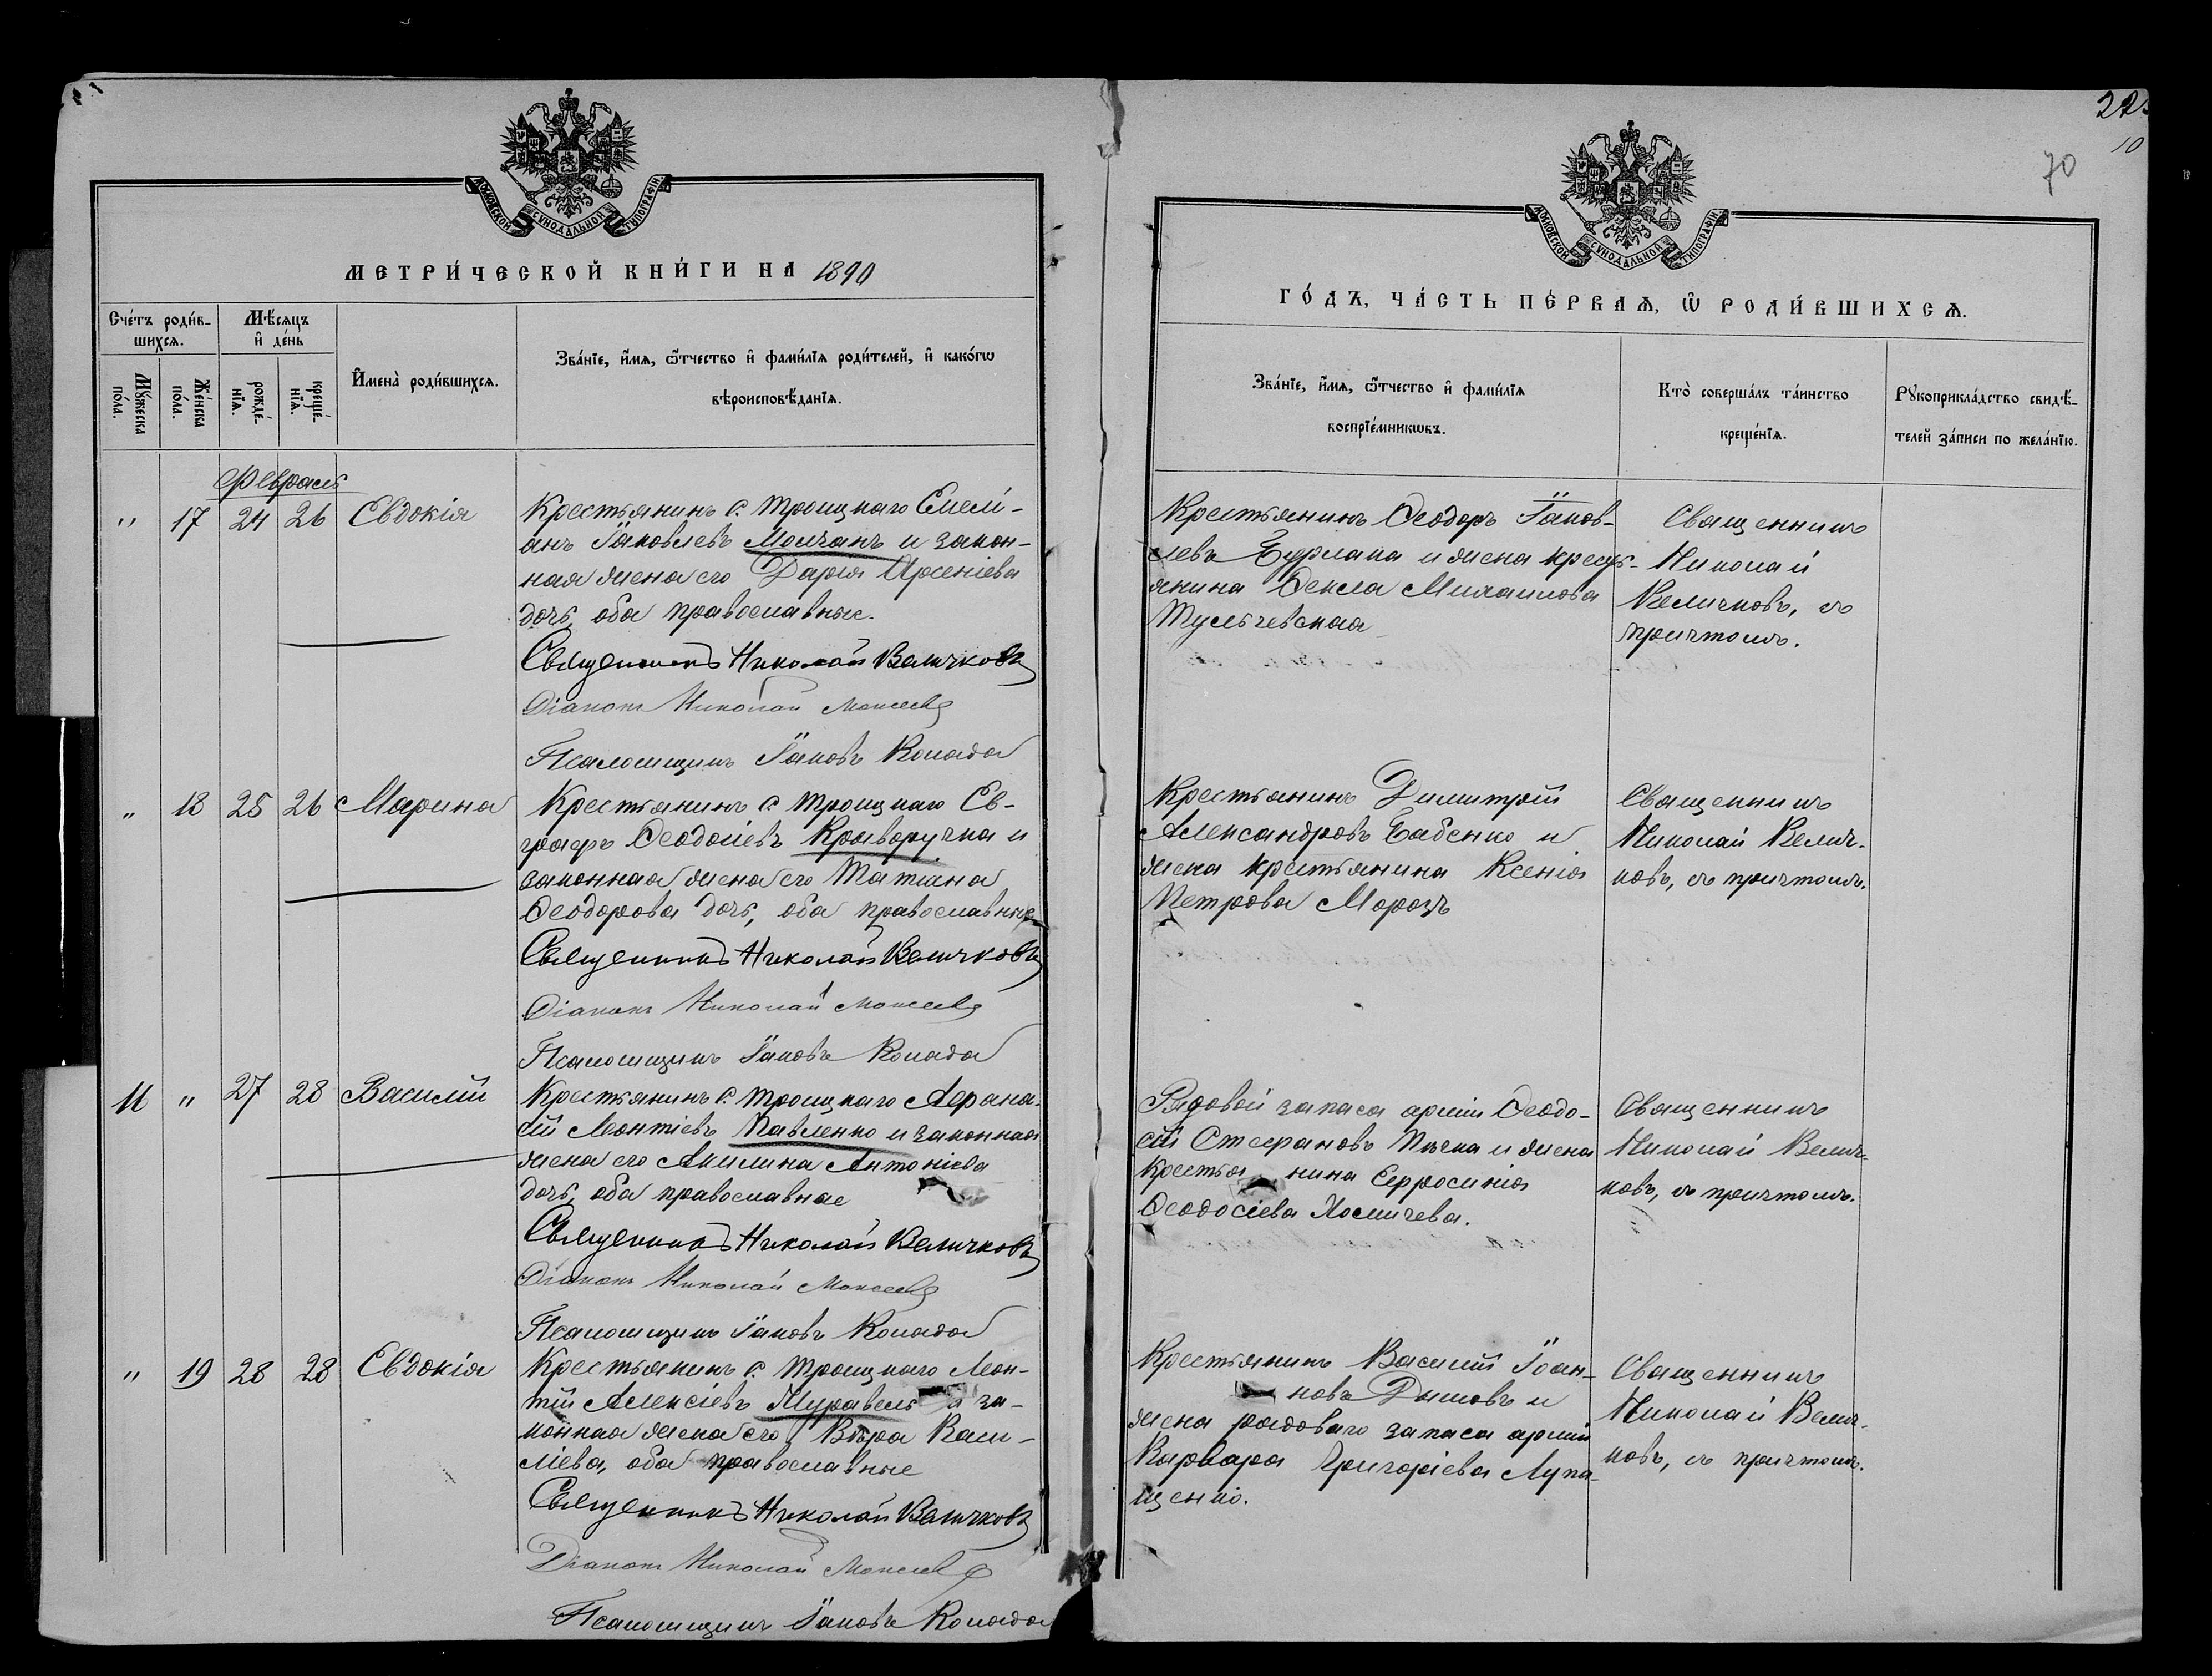 МОСКОВСКОЙ СѴНОДАЛЬНОЙ ТИПОГРАФІИ
МЕТРИ́ЧЕСКОЙ КНИ́ГИ НА 1890
Сче́тъ роди́в-
шихсѧ.
Мѣ́сѧцъ
и҆ де́нь
Мꙋ́жеска
по́ла.
Же́нска
по́ла.
рожде́-
нїѧ.
креще́-
нїѧ.
И҆мена̀ роди́вшихсѧ.
Зва́нїе, и҆́мѧ, ѻ҆́тчество и҆ фами́лїѧ роди́телей, и҆ како́гѡ
вѣроисповѣ́данїѧ.
Февраль
" 17 24 26 Евдокія
Крестьянинъ с. Троицкаго Емелі-
анъ Іаковлевъ Молчанъ и закон-
ная жена его Дарія Арсеніева
дочь, оба православные.
Священникъ Николай Величковъ
Діаконъ Николай Моисеевъ
Псаломщикъ Іаковъ Колада
" 18 25 26 Марина
Крестьянинъ с. Троицкаго Ев-
графъ Ѳеодосіевъ Криворучка и
законная жена его Татіана
Ѳеодорова дочь, оба православные
Священникъ Николай Величковъ
Діаконъ Николай Моисеевъ
Псаломщикъ Іаковъ Колада
11 " 27 28 Василій
Крестьянинъ с. Троицкаго Аѳана-
сій Леонтіевъ Павленко и законная
жена его Акилина Антоніева
дочь, оба православные
Священникъ Николай Величковъ
Діаконъ Николай Моисеевъ
Псаломщикъ Іаковъ Колада
" 19 28 28 Евдокія
Крестьянинъ с. Троицкаго Леон-
тій Алексіевъ Муравель и за-
конная жена его Вѣра Васи-
ліева, оба православные
Священникъ Николай Величковъ
Діаконъ Николай Моисеевъ
Псаломщикъ Іаковъ Колада
10
70
МОСКОВСКОЙ СѴНОДАЛЬНОЙ ТИПОГРАФІИ
ГО́ДЪ, ЧА́СТЬ ПЕ́РВАѦ, Ѡ҆ РОДИ́ВШИХСѦ.
Зва́нїе, и҆́мѧ, ѻ҆́тчество и҆ фами́лїѧ
воспрїе́мникѡвъ.
Кто̀ соверша́лъ та́инство
креще́нїѧ.
Рꙋкоприкла́дство свидѣ́-
телей за́писи по жела́нїю.
Крестьянинъ Ѳеодоръ Іаков-
левъ Бурлака и жена кресть-
янина Ѳекла Михаилова
Тульчевская
Священникъ
Николай
Величковъ, съ
причтомъ.
Крестьянинъ Димитрій
Александровъ Бабенко и
жена крестьянина Ксенія
Петрова Морозъ
Священникъ
Николай Велич-
ковъ, съ причтомъ.
Рядовой запаса арміи Ѳеодо-
сій Стефановъ и жена
крестьянина Евфросинія
Ѳеодосіева
Священникъ
Николай Велич-
ковъ, съ причтомъ.
Крестьянинъ Василій Іоан-
новъ Дымовъ и
жена рядоваго запаса арміи
Варвара Григоріева Лупа-
щенко.
Священникъ
Николай Велич-
ковъ, съ причтомъ.